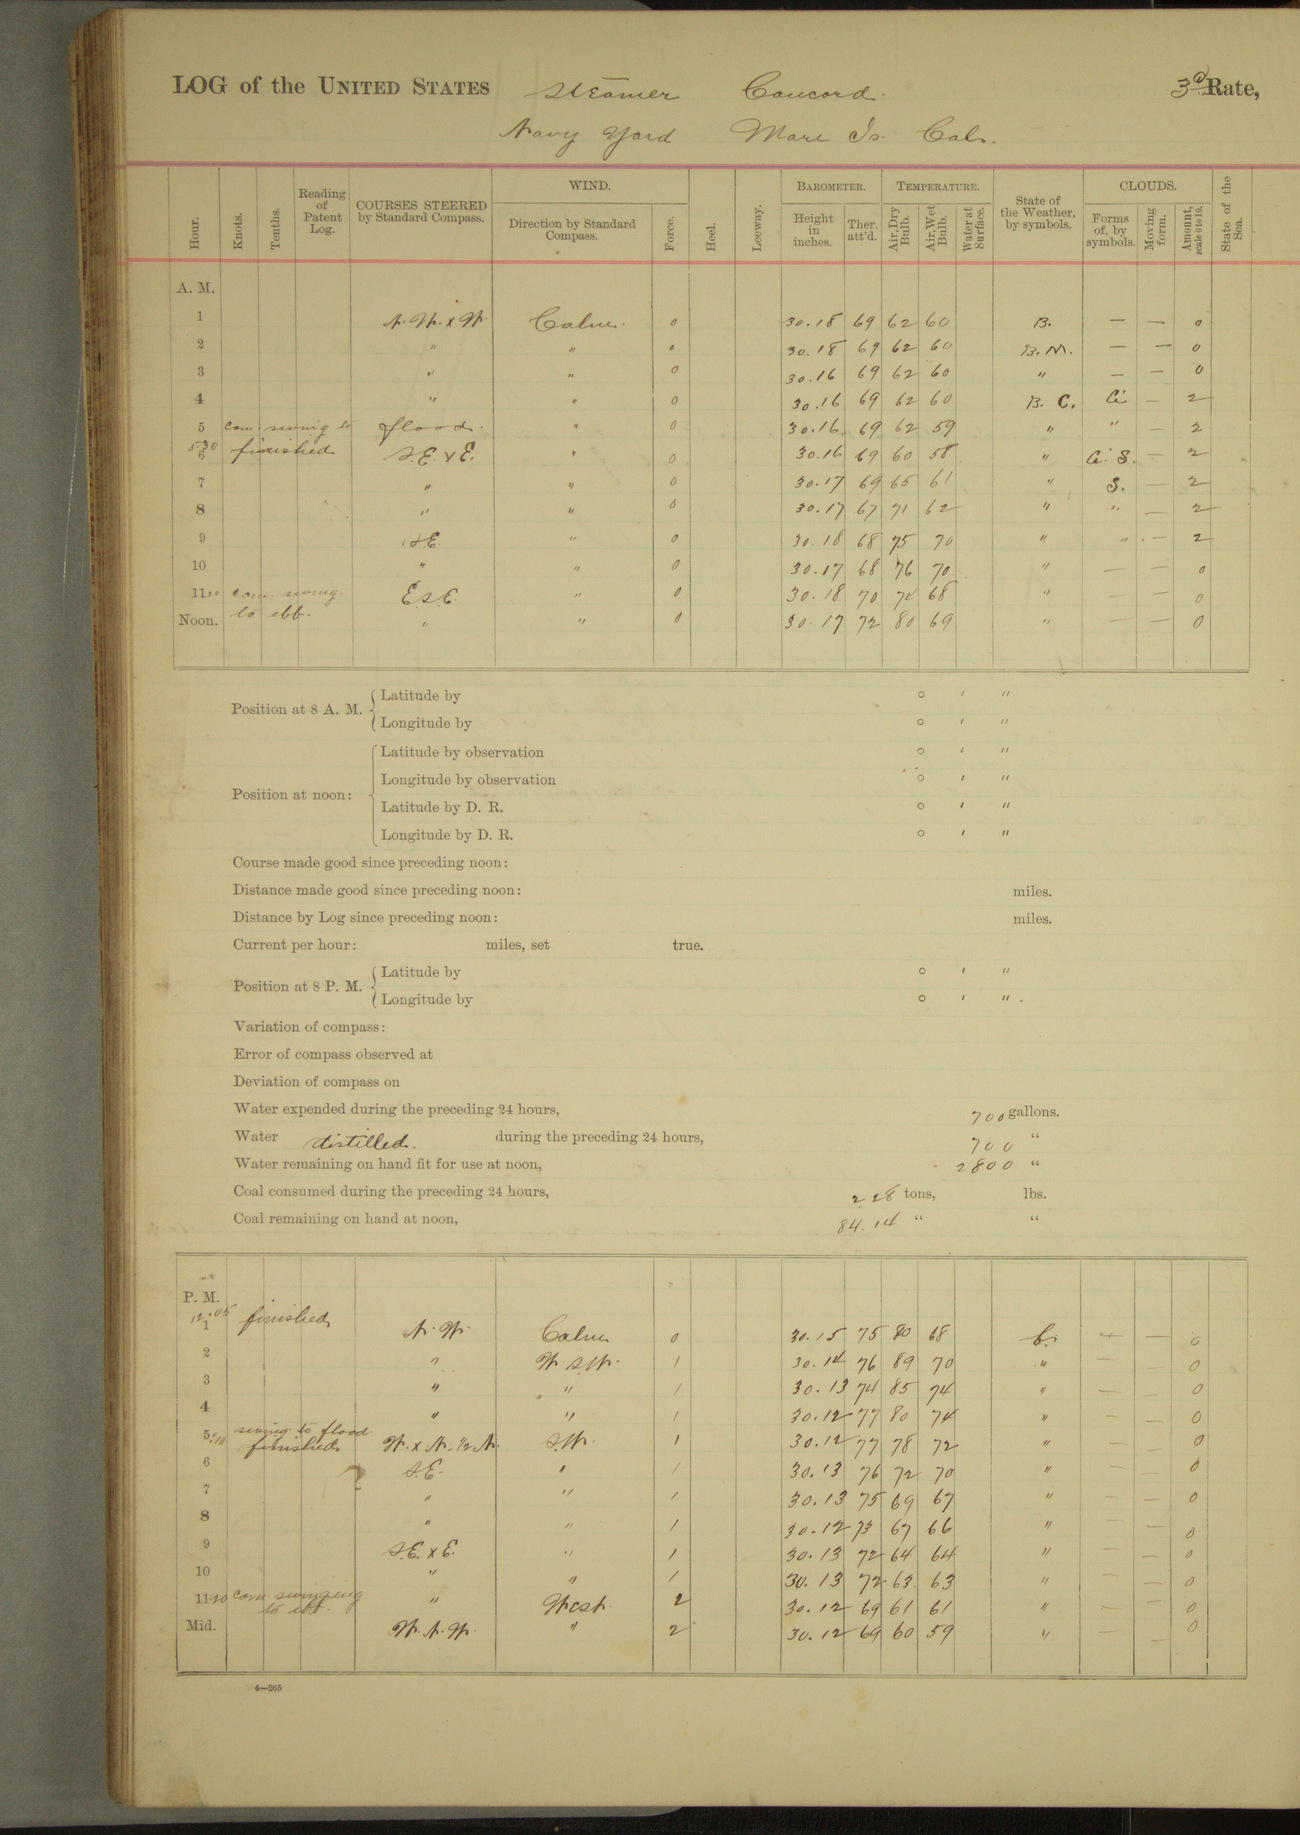 LOG of the UNITED STATES Steamer Concord. 3d Rate,
Navy Yard Mare Is. Cal.
Hour. Knots. Tenths. Reading of Patent Log. COURSES STEERED by Standard Compass. WIND. Direction by Standard Compass. Force. Heel. Leeway. BAROMETER. Height in inches. Ther. att'd. TEMPERATURE. Air, Dry Bulb. Air, Wet Bulb. Water at Surface. State of the Weather, by symbols. CLOUDS. Forms of, by symbols. Moving form. Amount, scale 0 to 10. State of the Sea.
A. M.
1 N.W. x W. Calm. 0 30.18 69 62 60 B. — — 0
2 " " 0 30.18 69 62 60 B.M. — — 0
3 " " 0 30.16 69 62 60 " — — 0
4 " " 0 30.16 69 62 60 B. C. Ci — 2
5 com. swing to flood. " 0 30.16 69 62 59 " " — 2
5.30 6 finished S.E. x E. " 0 30.16 69 60 58 " Ci. S. — 2
7 " " 0 30.17 69 65 61 " S. — 2
8 " " 0 30.17 67 71 62 " " — 2
9 S.E. " 0 30.18 68 75 70 " " — 2
10 " " 0 30.17 68 76 70 " — — 0
11 com. swing. E.S.E. " 0 30.18 70 74 68 " — — 0
to ebb.
Noon. " " 0 30.17 72 80 69 " — — 0
Position at 8 A. M. Latitude by ° ′ ″
Longitude by ° ′ ″
Position at noon: Latitude by observation ° ′ ″
Longitude by observation ° ′ ″
Latitude by D. R. ° ′ ″
Longitude by D. R. ° ′ ″
Course made good since preceding noon:
Distance made good since preceding noon: miles.
Distance by Log since preceding noon: miles.
Current per hour: miles, set true.
Position at 8 P. M. Latitude by ° ′ ″
Longitude by ° ′ ″
Variation of compass:
Error of compass observed at
Deviation of compass on
Water expended during the preceding 24 hours, 700 gallons.
Water distilled. during the preceding 24 hours, 700 "
Water remaining on hand fit for use at noon, 2800 "
Coal consumed during the preceding 24 hours, 2.28 tons, lbs.
Coal remaining on hand at noon, 84.14 " "
P. M.
12.05 1 finished N.W. Calm 0 30.15 75 80 68 b. — — 0
2 " W.S.W. 1 30.14 76 89 70 " — — 0
3 " " 1 30.13 74 85 74 " — — 0
4 " " 1 30.12 77 80 74 " — — 0
swing to flood
5:10 finished W. x N. 1/2 N. S.W. 1 30.12 77 78 72 " — — 0
6 S.E. " 1 30.13 76 72 70 " — — 0
7 " " 1 30.13 75 69 67 " — — 0
8 " " 1 30.12 73 67 66 " — — 0
9 S.E. x E. " 1 30.13 72 64 64 " — — 0
10 " " 1 30.13 72 63 63 " — — 0
11 com swinging " West. 2 30.12 69 61 61 " — — 0
to ebb.
Mid. W.N.W. " 2 30.12 69 60 59 " — — 0
4—265